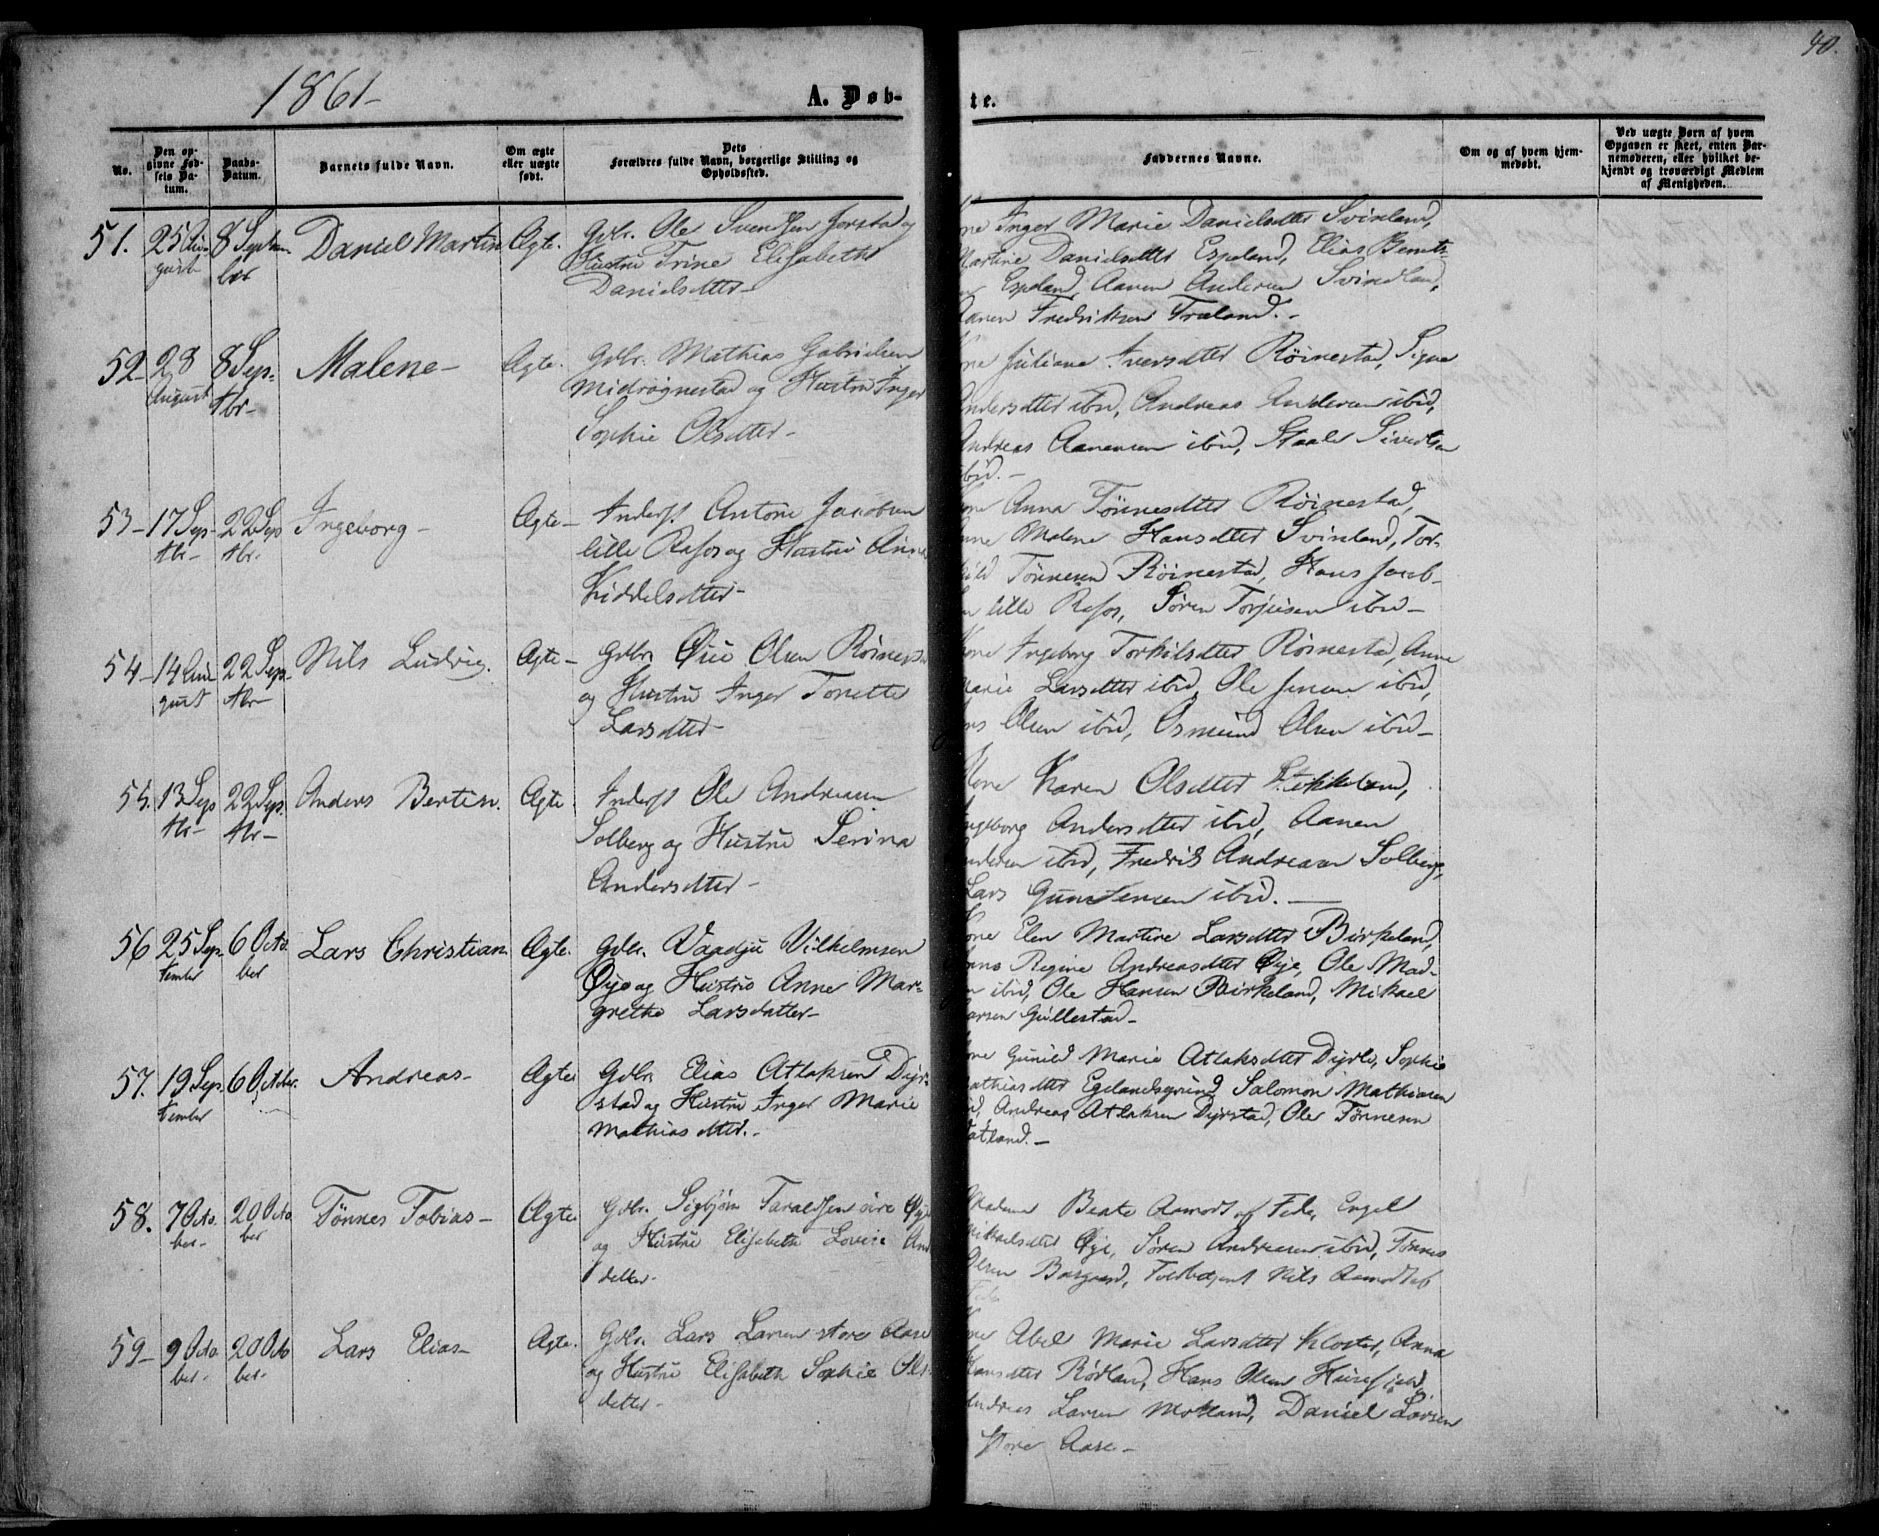 40.
1861-
A. Døb-
te.
No.
Den op-
givne Fød-
sels Da-
tum.
Daabs-
Datum.
Barnets fulde Navn.
Om ægte
eller uægte
født.
Dets
Forældres fulde Navn, borgerlige Stilling og
Opholdssted.
Faddernes Navne.
Om og af hvem hjem-
medøbt.
Ved uægte Børn af hvem
Opgaven er skeet, enten Bar-
nemoderen, eller hvilket be-
kjendt og troværdigt Medlem
af Menigheden.
51. 25 Au-
gust
8 Septem
ber
Daniel Martin
Ægte.
Gdbr. Ole Svendsen Jerstad og
Hustru Trine Elisabeth
Danielsdtter-
Inger Marie Danielsdtter Svinland,
Martine Danielsdtter Espeland, Elias Bernts
Espeland, Aanen Andersen Svindland,
Aanen Fredriksen Træland.-
52- 28
August
8 Sep-
tbr-
Malene-
Ægte.
Gdbr. Mathias Gabrielsen
Midrøgnestad og Hustru Inger
Sophie Olsdtter-
Juliane Iversdtter Røinestad, Signe
Andersdtter ibid, Andreas Andersen ibid,
Andreas Aanensen ibid, Staale Sivertsen
ibid.-
53- 17 Sep-
tbr-
22 Sep
tbr-
Ingeborg-
Ægte-
Inderst Antoni Jacobsen
lille Rafos og Hustru Anne
Kiddelsdtter-
Anna Tønnesdtter Røinestad,
Malene Hansdtter Svinland, Tor-
kild Tønnesen Røinestad, Hans Jacob-
sen lille Rafos, Søren Torjusen ibid-
54- 14 Au-
gust
22 Sep-
tbr-
Nils Ludvig.
Ægte-
Gdbr. Olsen Røinest
og Hustru Inger Tonette
Larsdtter-
Kone Ingeborg Torkilsdtter Røinestad, Anne
Marie Larsdtter ibid, Ole Jensen ibid,
Olsen ibid, Osmund Olsen ibid-
55. 13 Sep
tbr-
22 Sep.
tbr-
Anders Bertin.
Ægte.
Inderst Ole Andreasen
Solberg og Hustru Serina
Andersdtter-
Kone Karen Olsdtter Stakkeland,
Ingeborg Andersdtter ibid, Aanen
Andersen ibid, Fredrik Andreasen Solberg,
Lars Gundersen ibid.-
56 25 Sep-
tember
6 Octo-
ber
Lars Christian
Ægte.
Gdbr. Vaadju Vilhelmsen
Øye og Hustru Anne Mar-
grethe Larsdatter-
Kone Elen Martine Larsdtter Birkeland,
Regine Andreasdtter Øye, Ole Mad-
sen ibid, Ole Hansen Birkeland, Mikael
Larsen Gullestad-
57. 19 Sep.
tember
6 October.
Andreas-
Ægte
Gdbr. Elias Atlaksen Dyr-
stad og Hustru Inger Marie
Mathiasdtter.-
Kone Gunild Marie Atlaksdtter Dyrli, Sophie
Mathiasdtter Egelandsgrund, Salomon Mathiasen
ibid, Andreas Atlaksen Dyrstad, Ole Tønnesen
Fatland.-
58. 7 Octo.
ber-
20 Octo
ber
Tønnes Tobias-
Ægte
Gdbr. Sigbjørn Taraldsen øvre Øye
og Hustru Elisabeth Lovise
detter-
Madam Beate Aamodt af Fede, Engel
Mikkelsdtter Øye, Søren Andreasen ibid, Tønnes
Olsen Bargaard, Toldbetjent Nils Aamodt af
Fede
59- 9 Octo
ber-
20 Octo
ber-
Lars Elias-
Ægte.
Gdbr. Lars Larsen store Aase
og Hustru Elisabeth Sophie Ols-
detter-
Abel Marie Larsdtter Kloster, Anna
Hansdtter Rødland, Hans Olsen Husefjeld,
Andreas Larsen Mokland, Daniel Larsen
store Aase-